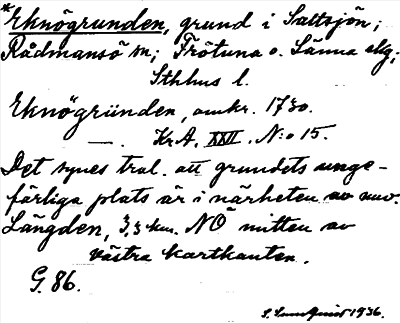 *Eknögrunden, grund i Saltsjön;
Rådmansö sn; Frötuna o. Länna slg;
Sthlms l.
Eknögründen, omkr. 1730.
—. Kr.A. XXII. N:o 15.
Det synes tral. att grundets unge-
färliga plats är i närheten av nuv.
Längden, 3,3 km. NO mitten av
västra kartkanten.
G. 86.
S. Lundquist 1936.